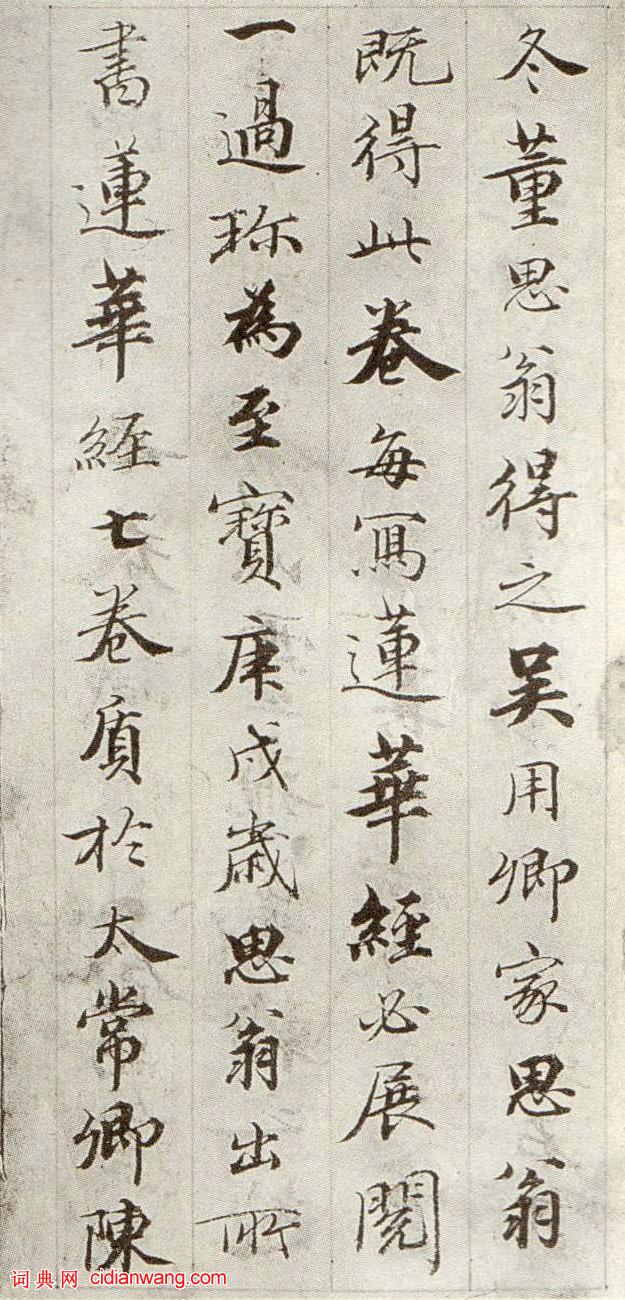 冬董思翁得之吴用卿家思翁
既得此卷每寫蓮華經必展閲
一過珎為至寶庚戌歲思翁出所
書蓮華經七卷質於太常卿陳
词典网 cidianwang.com